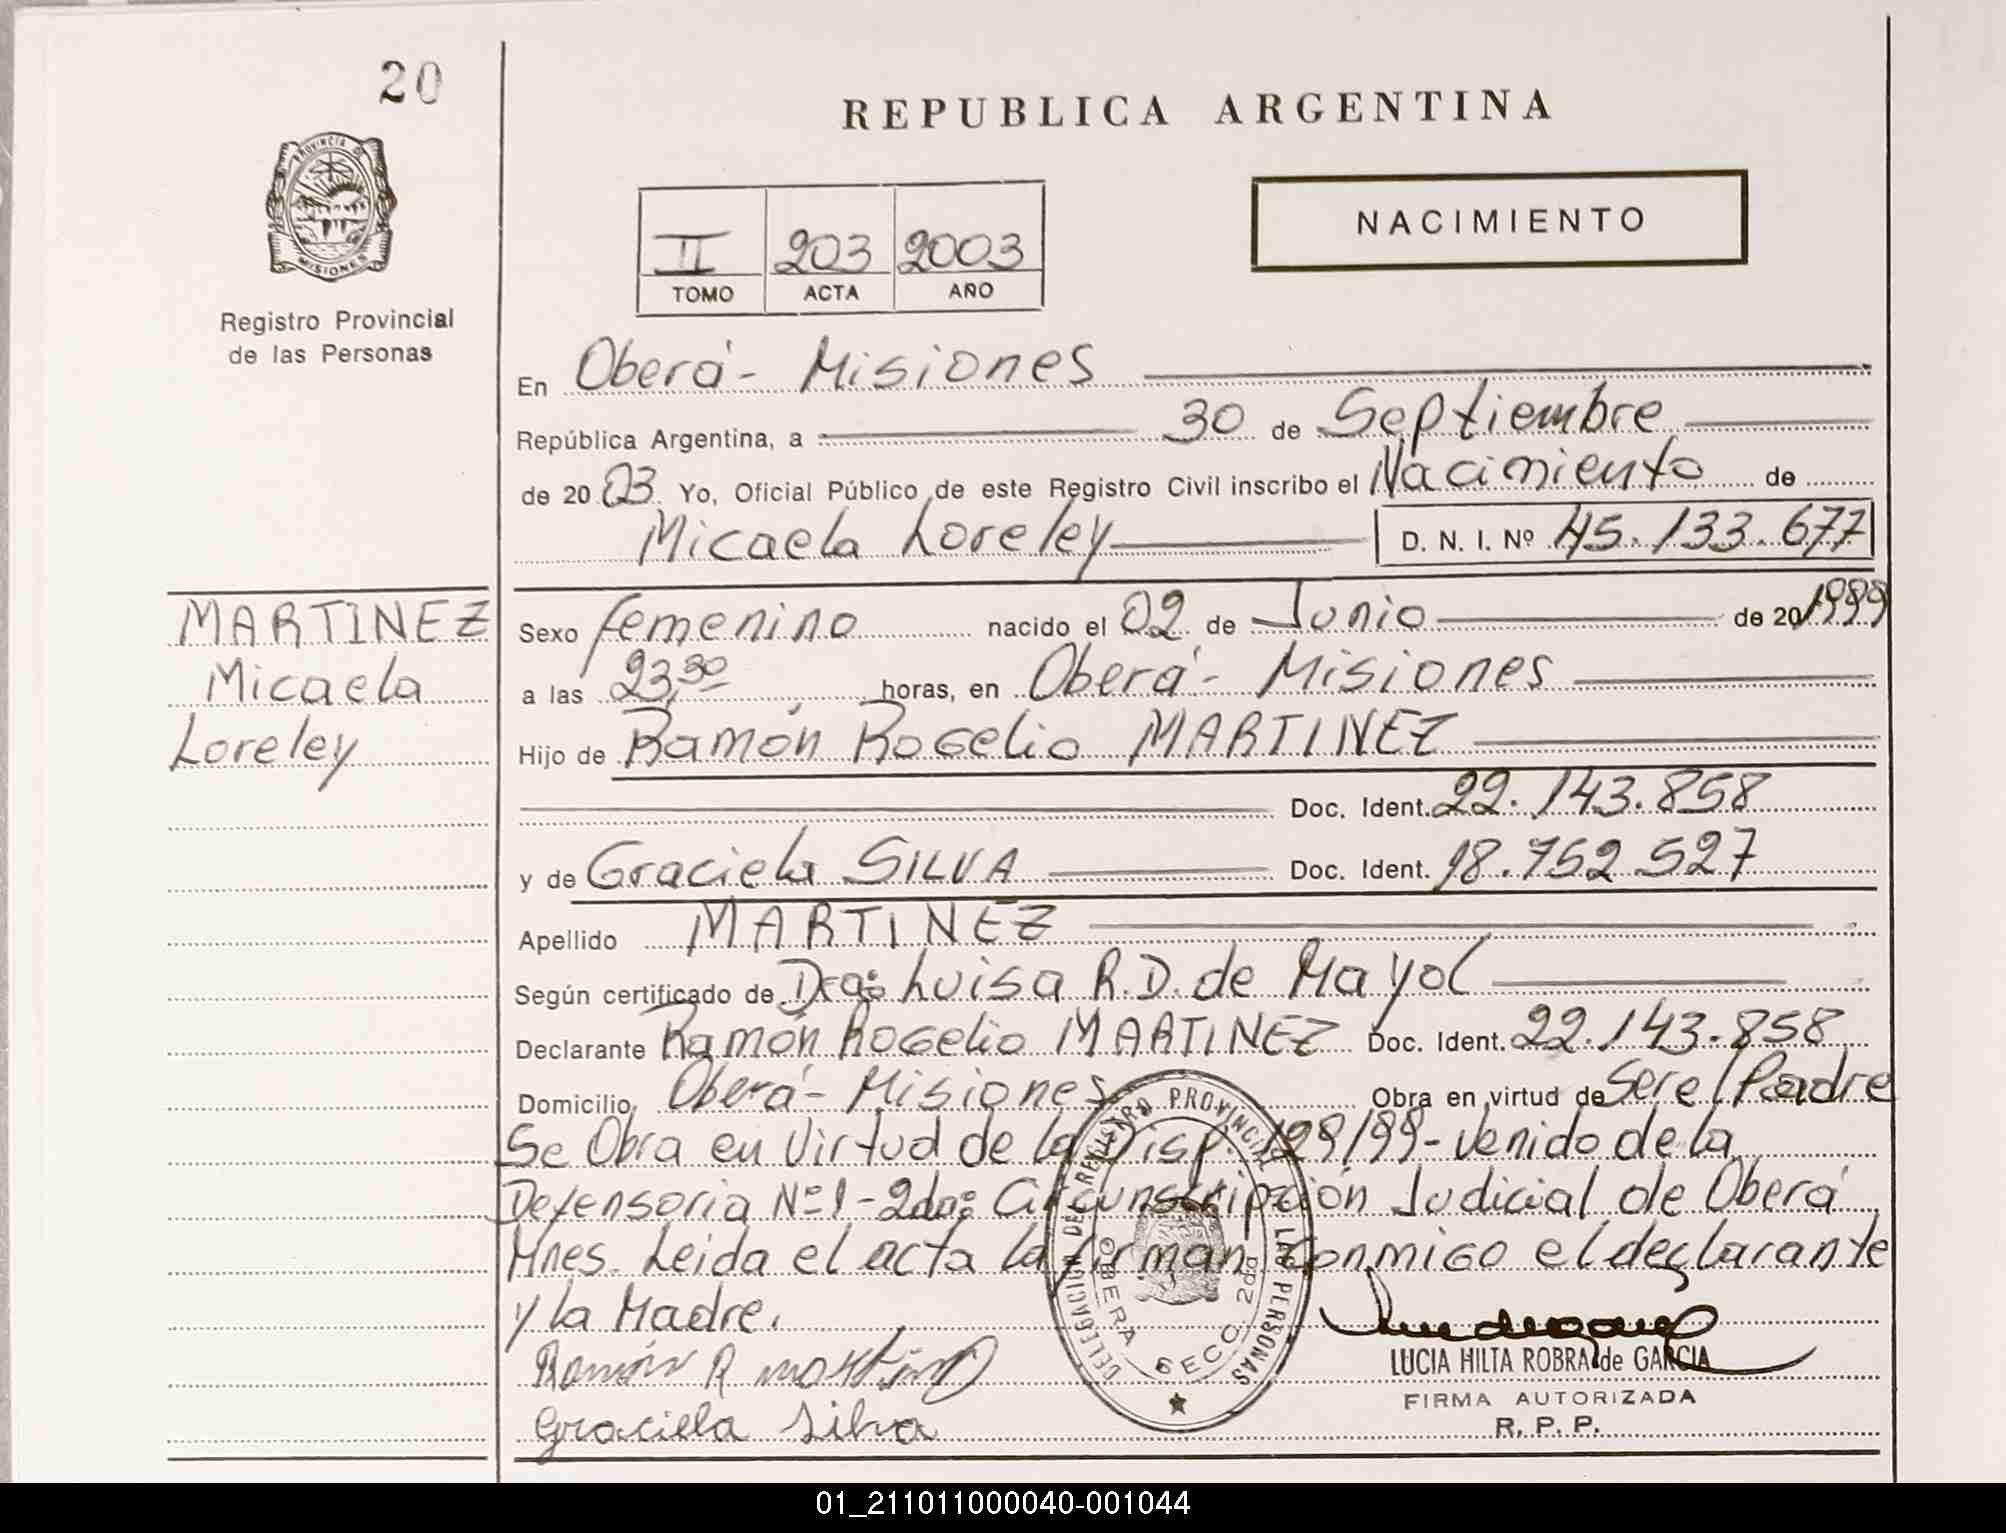 20
REPUBLICA ARGENTINA
PROVINCIA D
MISIONES
Registro Provincial
de las Personas
NACIMIENTO
II 203 2003
TOMO ACTA AÑO
En Oberá - Misiones
República Argentina, a 30 de Septiembre
de 2003 Yo, Oficial Público de este Registro Civil inscribo el Nacimiento de
Micaela Loreley D. N. I. Nº 45.133.677
MARTINEZ
Micaela
Loreley
Sexo femenino nacido el 02 de Junio de 20/1999
a las 23,30 horas, en Oberá - Misiones
Hijo de Ramón Rogelio MARTINEZ
Doc. Ident. 22.143.858
y de Graciela SILVA Doc. Ident. 18.752.527
Apellido MARTINEZ
Según certificado de Dra: Luisa R.D. de Mayol
Declarante Ramón Rogelio MARTINEZ Doc. Ident. 22.143.858
Domicilio Oberá - Misiones Obra en virtud de Ser el Padre
Se Obra en Virtud de la Disp. 129/99 - venido de la
Defensoria Nº 1 - 2da: Circunscripción Judicial de Oberá
Mnes. Leida el acta la firman conmigo el declarante
y la Madre.
Ramón R
Graciela Silva
DELEGACION DEL REGISTRO PROVINCIAL LAS PERSONAS
OBERA SECC. 2da
LUCIA HILTA ROBRA de GARCIA
FIRMA AUTORIZADA
R. P. P.
01_211011000040-001044